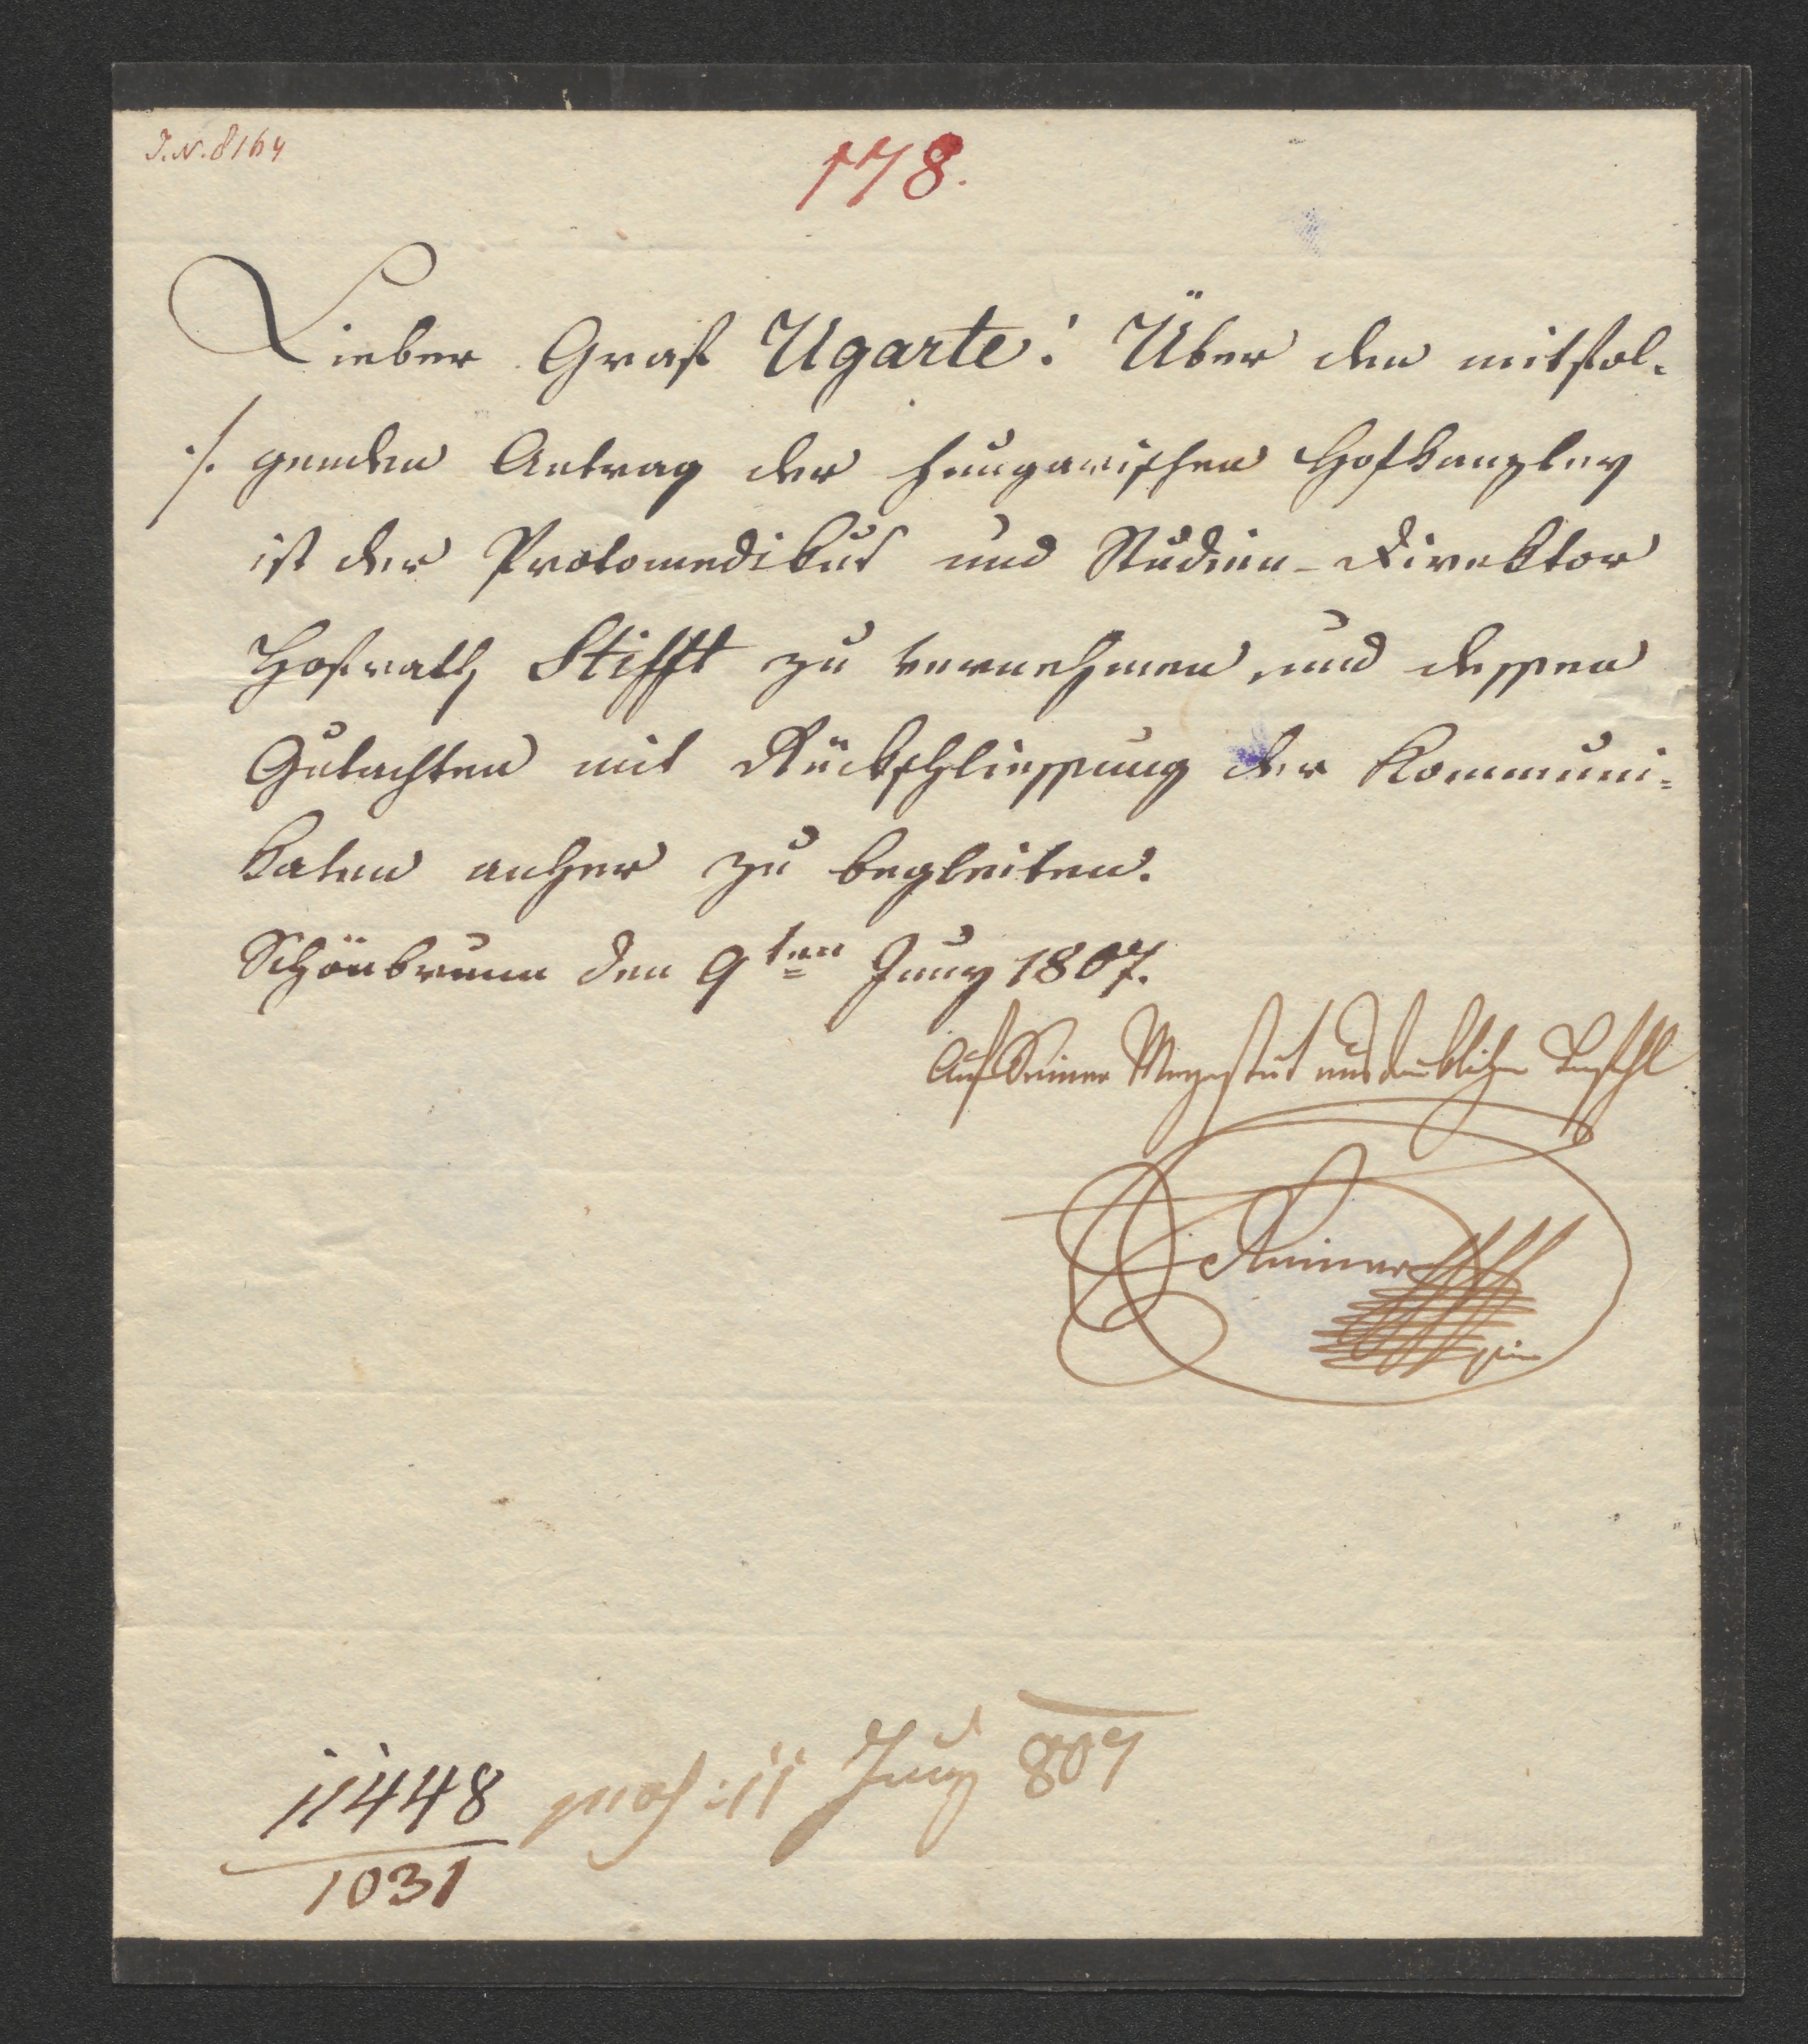 I.N. 8164
178.
Lieber Graf Ugarte! Über den mitfol-
./. genden Antrag der hungarischen Hofkanzley
ist der Protomedikus und Studien-Direktor
Hofrath Stifft zu vernehmen, und dessen
Gutachten mit Rückschliessung der Kommuni=
katen anher zu begleiten.
Schönbrunn den 9ten Juny 1807.
Auf Seiner Majestät ausdrüklichen Befehl
Rainer
11448 praes: 11 Juny 807
1031